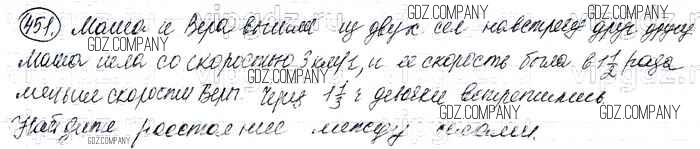 451. Маша и Вера вышли из двух сел навстречу друг другу
Маша шла со скоростью 3 км/ч, и ее скорость была в 1 1/2 раза
меньше скорости Веры. Через 1 1/3 ч девочки встретились
Найдите расстояние между селами.
GDZ.COMPANY GDZ.COMPANY GDZ.COMPANY
GDZ.COMPANY GDZ.COMPANY
GDZ.COMPANY GDZ.COMPANY GDZ.COMPANY